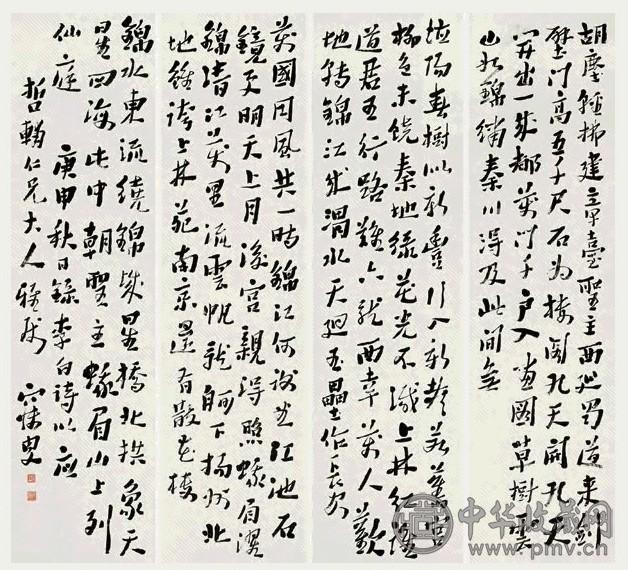 胡塵輕拂建章臺聖主西巡蜀道來劍
壁门高五千尺石为楼阁九天開九天
開出一成都萬户千门入画图草樹雲
山如錦繡秦川得及此間無
陽春樹似新豐行入新都若舊宮
柳色未饒秦地綠花光不減上林紅誰
道君王行路難六龍西幸萬人歡
地轉錦江成渭水天迴玉壘作長安
萬國同風共一時錦江何謝曲江池石
鏡更明天上月後宮親得照蛾眉濯
錦清江萬里流雲帆龍舸下揚州北
地雖誇上林苑南京還有散花樓
錦水東流繞錦城星橋北拱象天
星四海此中朝聖主蛾眉山上列
仙庭 庚申秋日錄李白詩以應
哲 仁兄大人雅屬 叟
中华收藏网
www.pmv.cn